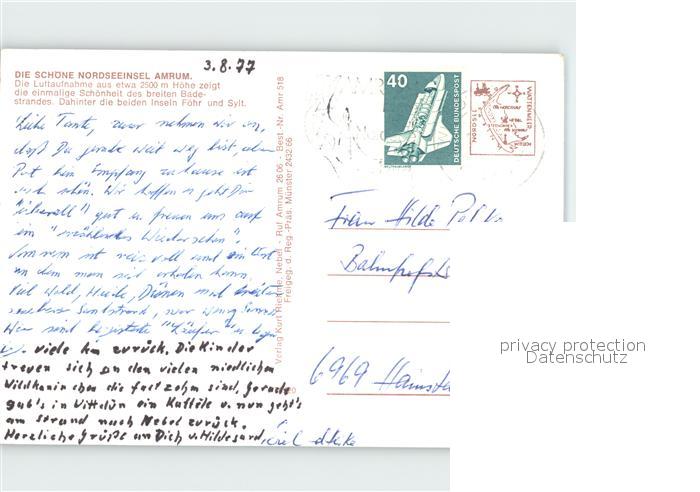 3.8.77
DIE SCHÖNE NORDSEEINSEL AMRUM.
Die Luftaufnahme aus etwa 2500 m Höhe zeigt
die einmalige Schönheit des breiten Bade-
strandes. Dahinter die beiden Inseln Föhr und Sylt.
Liebe Tante, zwar nehmen wir an,
daß Du gerade weit weg bist, aber
Post beim Empfang zu Hause ist
auch schön. Wir hoffen es geht Dir
"überall" gut u. freuen uns auf
ein Wiedersehen".
Amrum ist reizvoll und ein Ort
an dem man sich erholen kann.
Viel Wald, Heide, Dünen und
Sandstrand, nur wenig Sonne.
Wir sind begeisterte "Läufer" u. legen
viele km zurück. Die Kinder
freuen sich an den vielen niedlichen
Wildkaninchen die fast zahm sind. Gerade
gab's in Vittdün ein Kaffele u. nun geht's
am Strand nach Nebel zurück.
Herzliche Grüße an Dich v. Hildegard,
Verlag Kurt Riemne, Nebel - Ruf Amrum 2606 - Best.-Nr. Amr 518
Freigeg. d. Reg.-Präs. Münster 2433/66
40
DEUTSCHE BUNDESPOST
WATTENMEER
NORDSEE
Frau Hilde
Bahnhofstr
6969 Hainsta
privacy protection
Datenschutz